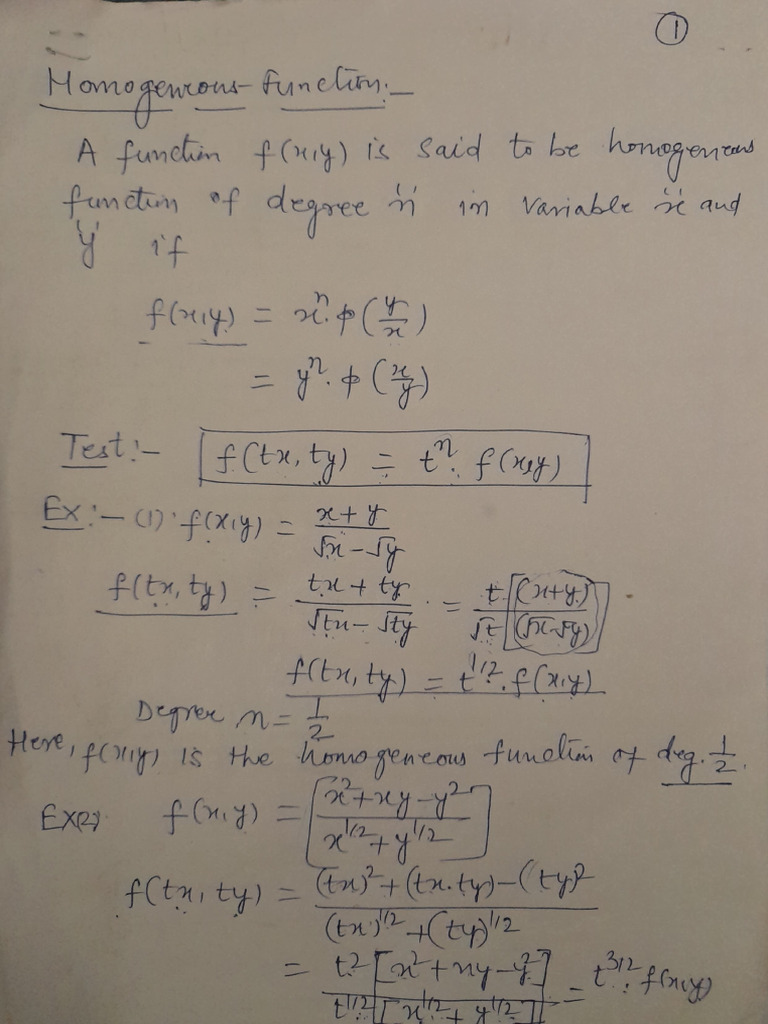 ①
Homogeneous function:-
A function f(x,y) is said to be homogeneous
function of degree 'n' in variable 'x' and
'y' if
f(x,y) = xⁿ·ϕ(y/x)
= yⁿ·ϕ(x/y)
Test:- f(tx, ty) = tⁿ. f(x,y)
Ex:- (1). f(x,y) = (x+y)/(√x-√y)
f(tx, ty) = (tx + ty)/(√tx - √ty) = t.(x+y)/√t(√x-√y)
f(tx, ty) = t^1/2. f(x,y)
Degree n = 1/2
Here, f(x,y) is the homogeneous function of deg. 1/2.
EX(2) f(x,y) = [(x²+xy-y²)/(x^1/2+y^1/2)]
f(tx, ty) = ((tx)²+(tx.ty)-(ty)²)/((tx)^1/2+(ty)^1/2)
= t²[x²+xy-y²]/t^1/2[x^1/2+y^1/2] = t^3/2. f(x,y)